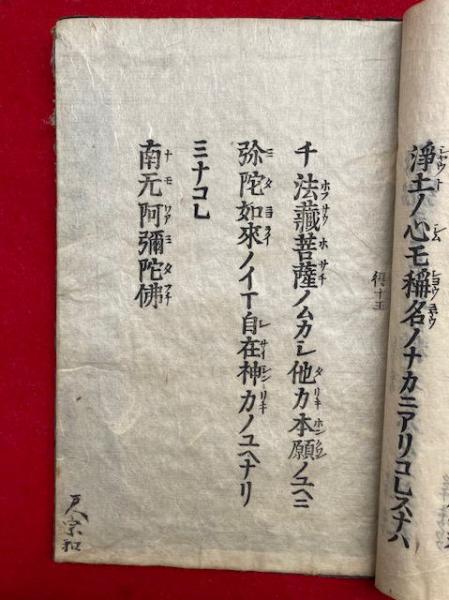 淨土ノ心モ稱名ノナカニアリコレスナハ
チ法藏菩薩ノムカシ他力本願ノユヘニ
弥陀如來ノイマ自在神力ノユヘナリ
ミナコレ
南无阿彌陀佛